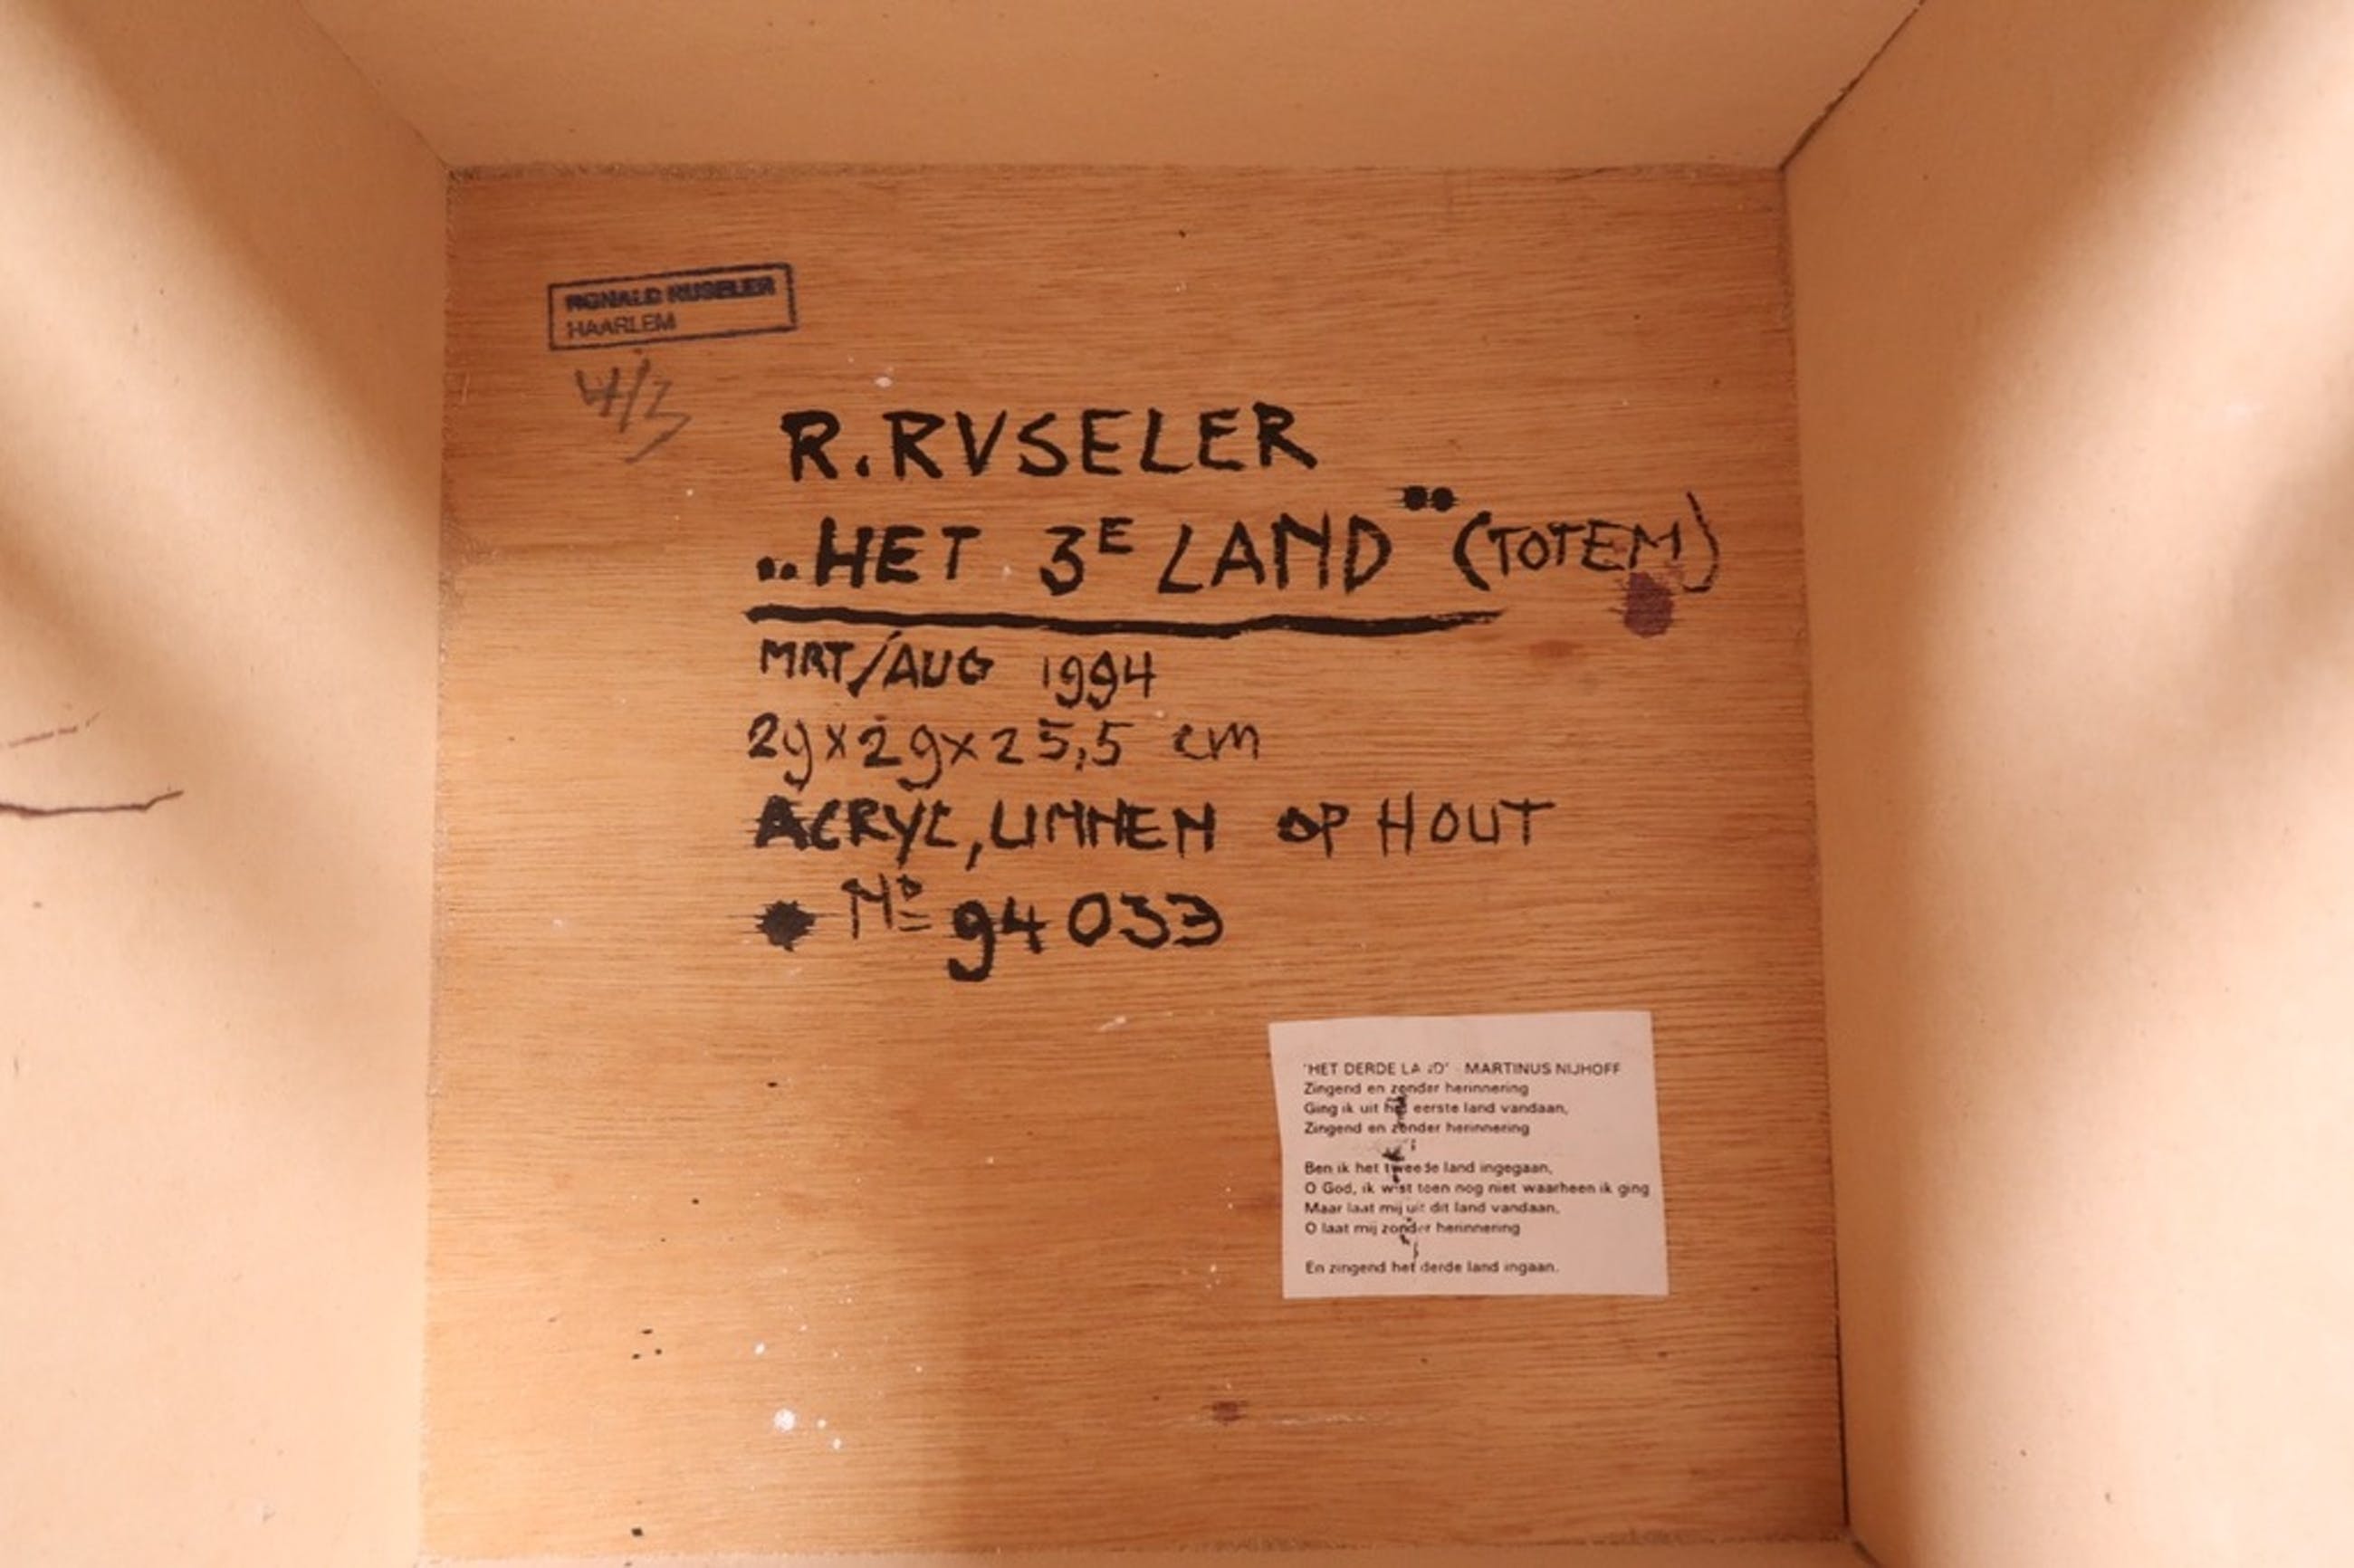 RONALD RUSELER
HAARLEM
4/3
R. RVSELER
„HET 3E LAND" (TOTEM)
MRT/AUG 1994
29x29x25,5 cm
ACRYL, LINNEN OP HOUT
No 94033
'HET DERDE LAND' - MARTINUS NIJHOFF
Zingend en zonder herinnering
Ging ik uit het eerste land vandaan,
Zingend en zonder herinnering
Ben ik het tweede land ingegaan,
O God, ik wist toen nog niet waarheen ik ging
Maar laat mij uit dit land vandaan,
O laat mij zonder herinnering
En zingend het derde land ingaan.